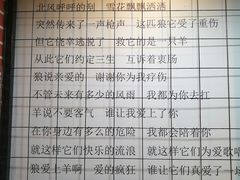 北风呼呼的刮 雪花飘飘洒洒
突然传来了一声枪声 这匹狼它受了重伤
但它侥幸逃脱了 救它的是一只羊
从此它们约定三生 互诉着衷肠
狼说亲爱的 谢谢你为我疗伤
不管未来有多少的风雨 我都为你去扛
羊说不要客气 谁让我爱上了你
在你身边有多么的危险 我都会陪着你
就这样它们快乐的流浪 就这样它们为爱歌唱
狼爱上羊啊 爱的疯狂 谁让它们真爱了一场